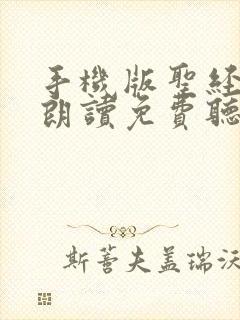 手機版聖經
朗讀免費聽
斯蒼夫盖瑞沃